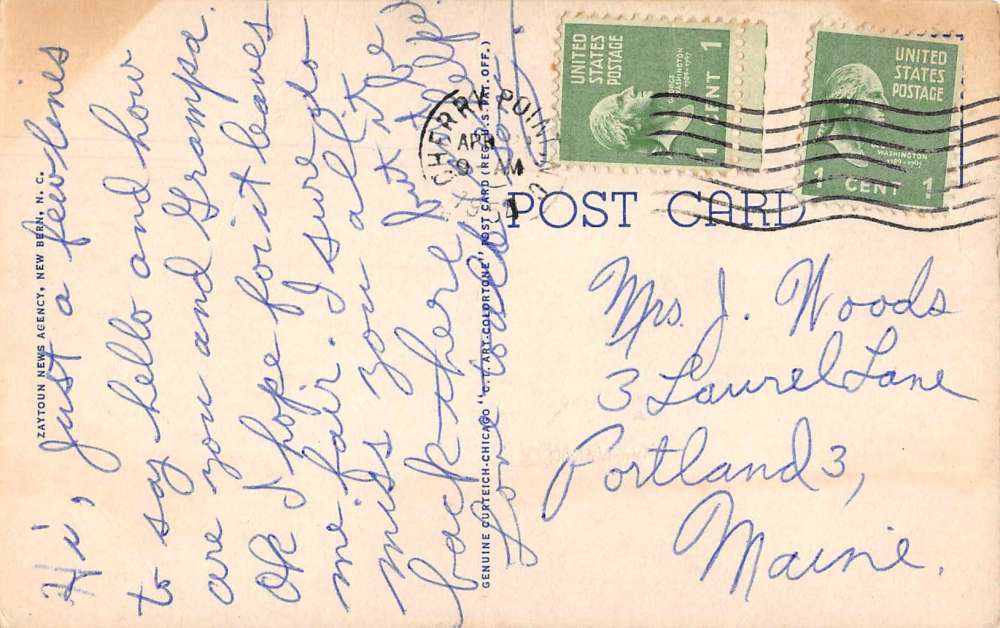 ZAYTOUN NEWS AGENCY, NEW BERN, N. C.
Hi, Just a few lines
to say hello and how
are you and Grampa.
OK I hope for it leaves
me fair. I sure do
miss you all it be
back there but be
Love
GENUINE CURTEICH-CHICAGO "C.T. ART-COLORTONE" POST CARD (REG. U.S. PAT. OFF.)
CHERRY POINT
APR
9 AM
UNITED
STATES
POSTAGE
GEORGE
WASHINGTON
1789-1797
1 CENT 1
UNITED
STATES
POSTAGE
WASHINGTON
1789-1797
1 CENT 1
POST CARD
Mrs. J. Woods
3 Laurel Lane
Portland 3,
Maine.